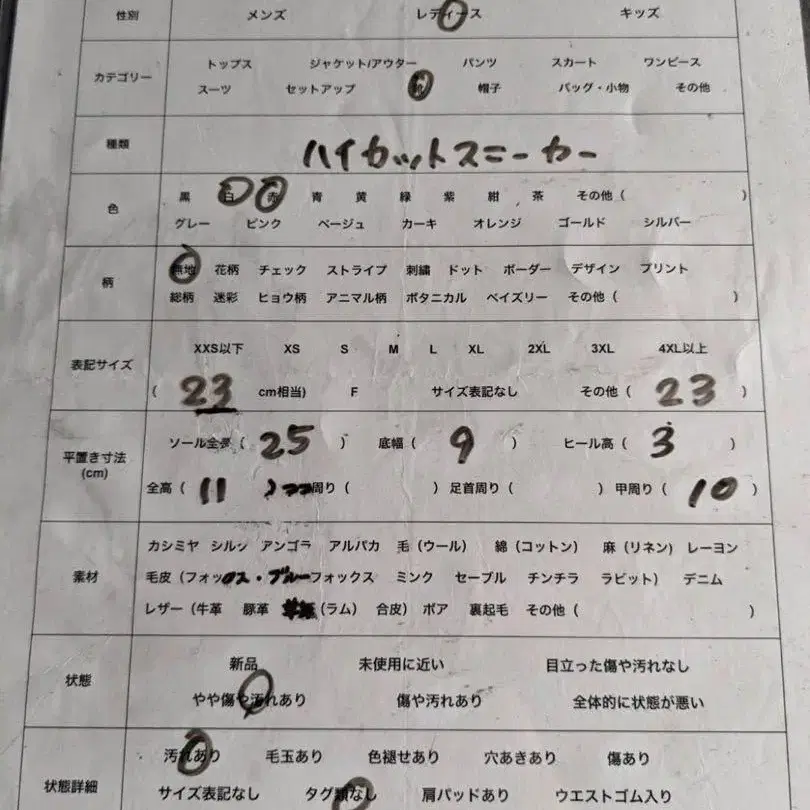 性別 メンズ レディース キッズ
カテゴリー トップス ジャケット/アウター パンツ スカート ワンピース
スーツ セットアップ 靴 帽子 バッグ・小物 その他
種類 ハイカットスニーカー
色 黒 白 赤 青 黄 緑 紫 紺 茶 その他 ( )
グレー ピンク ベージュ カーキ オレンジ ゴールド シルバー
柄 無地 花柄 チェック ストライプ 刺繍 ドット ボーダー デザイン プリント
総柄 迷彩 ヒョウ柄 アニマル柄 ボタニカル ペイズリー その他 ( )
表記サイズ XXS以下 XS S M L XL 2XL 3XL 4XL以上
( 23 cm相当) F サイズ表記なし その他 ( 23 )
平置き寸法 (cm) ソール全長 ( 25 ) 底幅 ( 9 ) ヒール高 ( 3 )
全高 ( 11 ) 周り ( ) 足首周り ( ) 甲周り ( 10 )
素材 カシミヤ シルク アンゴラ アルパカ 毛 (ウール) 綿 (コットン) 麻 (リネン) レーヨン
毛皮 (フォックス・ブルーフォックス ミンク セーブル チンチラ ラビット) デニム
レザー (牛革 豚革 (ラム) 合皮) ボア 裏起毛 その他 ( )
状態 新品 未使用に近い 目立った傷や汚れなし
やや傷や汚れあり 傷や汚れあり 全体的に状態が悪い
状態詳細 汚れあり 毛玉あり 色褪せあり 穴あきあり 傷あり
サイズ表記なし タグ類なし 肩パッドあり ウエストゴム入り